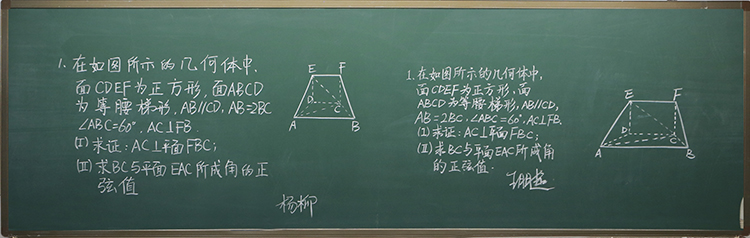 1. 在如图所示的几何体中,
面CDEF为正方形,面ABCD
为等腰梯形,AB//CD,AB=2BC
∠ABC=60°,AC⊥FB
(I)求证:AC⊥平面FBC;
(II)求BC与平面EAC所成角的正
弦值
杨柳
E F
D C
A B
1. 在如图所示的几何体中,
面CDEF为正方形,面
ABCD为等腰梯形,AB//CD,
AB=2BC,∠ABC=60°,AC⊥FB.
(I)求证:AC⊥平面FBC;
(II)求BC与平面EAC所成角
的正弦值.
E F
D C
A B